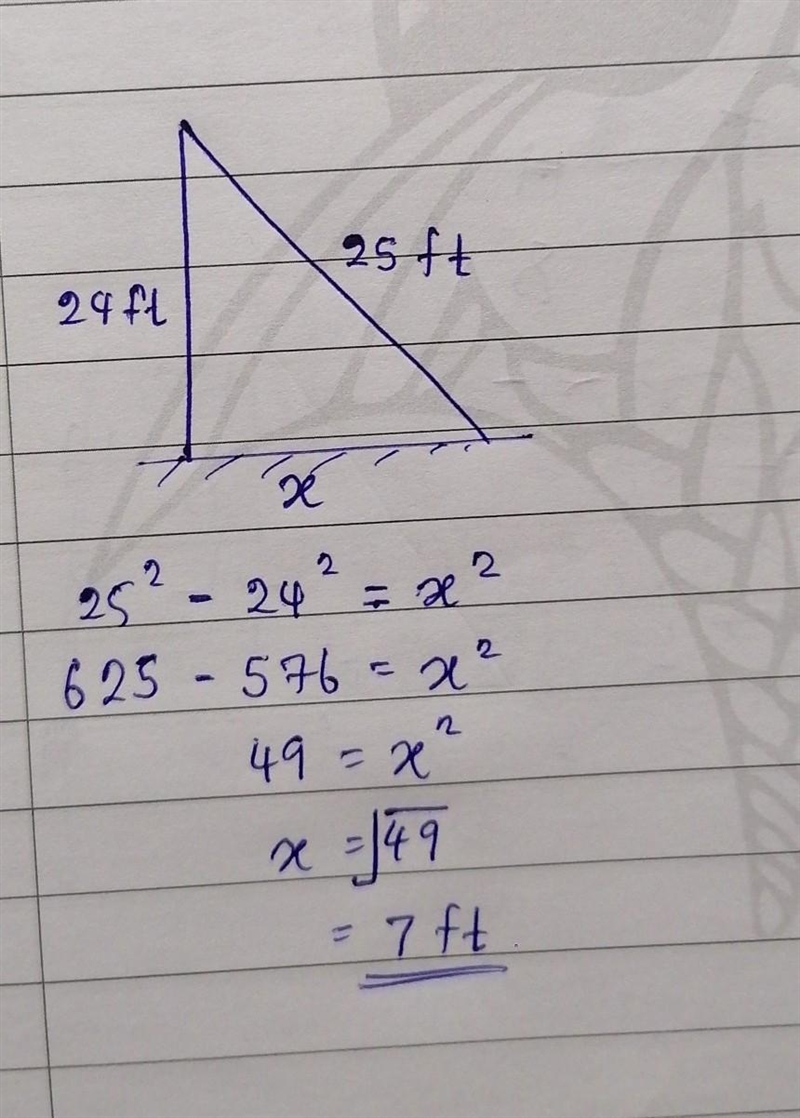 25 ft
24 ft
x
25² - 24² = x²
625 - 576 = x²
49 = x²
x = √49
= 7 ft